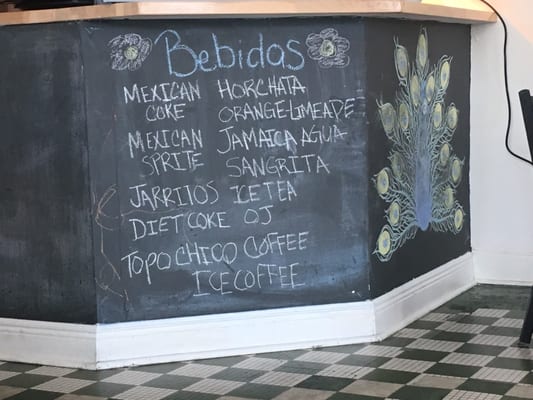 Bebidas
MEXICAN HORCHATA
COKE ORANGE-LIMEADE
MEXICAN JAMAICA AGUA
SPRITE SANGRITA
JARRITOS ICE TEA
DIET COKE OJ
TOPO CHICO COFFEE
ICE COFFEE